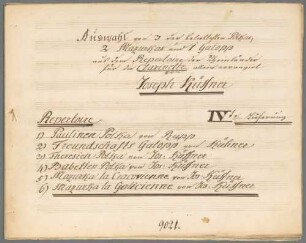 Auswahl von 3 der beliebtesten Polkas,
2 Mazurkas und 1 Galopp
aus dem Repertoire der Rheinländer
für die Clarinette allein arrangirt
von
Joseph Küffner
Repertoire IVte Lieferung
1) Paulinen Polka von Rupp
2) Freundschafts Galopp von Hübner
3) Theresien Polka von Jos. Küffner
4) Babetten Polka von Jos. Küffner
5) Mazurka la Cracovienne von Jos. Küffner
6) Mazurka la Galicienne von Jos. Küffner
9021.